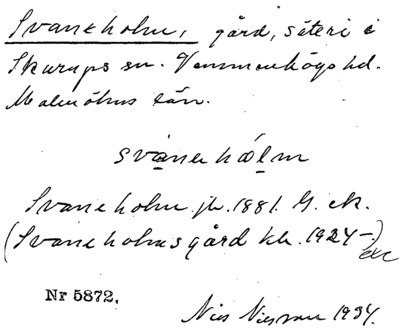 Svaneholm, gård, säteri i
Skurups sn. Vemmenhögs hd.
Malmöhus län.
svanehålm
Svaneholm jb. 1881. G. ek.
(Svaneholmsgård kb. 1924-)
Nr 5872.
Nils Nilsson 1934.